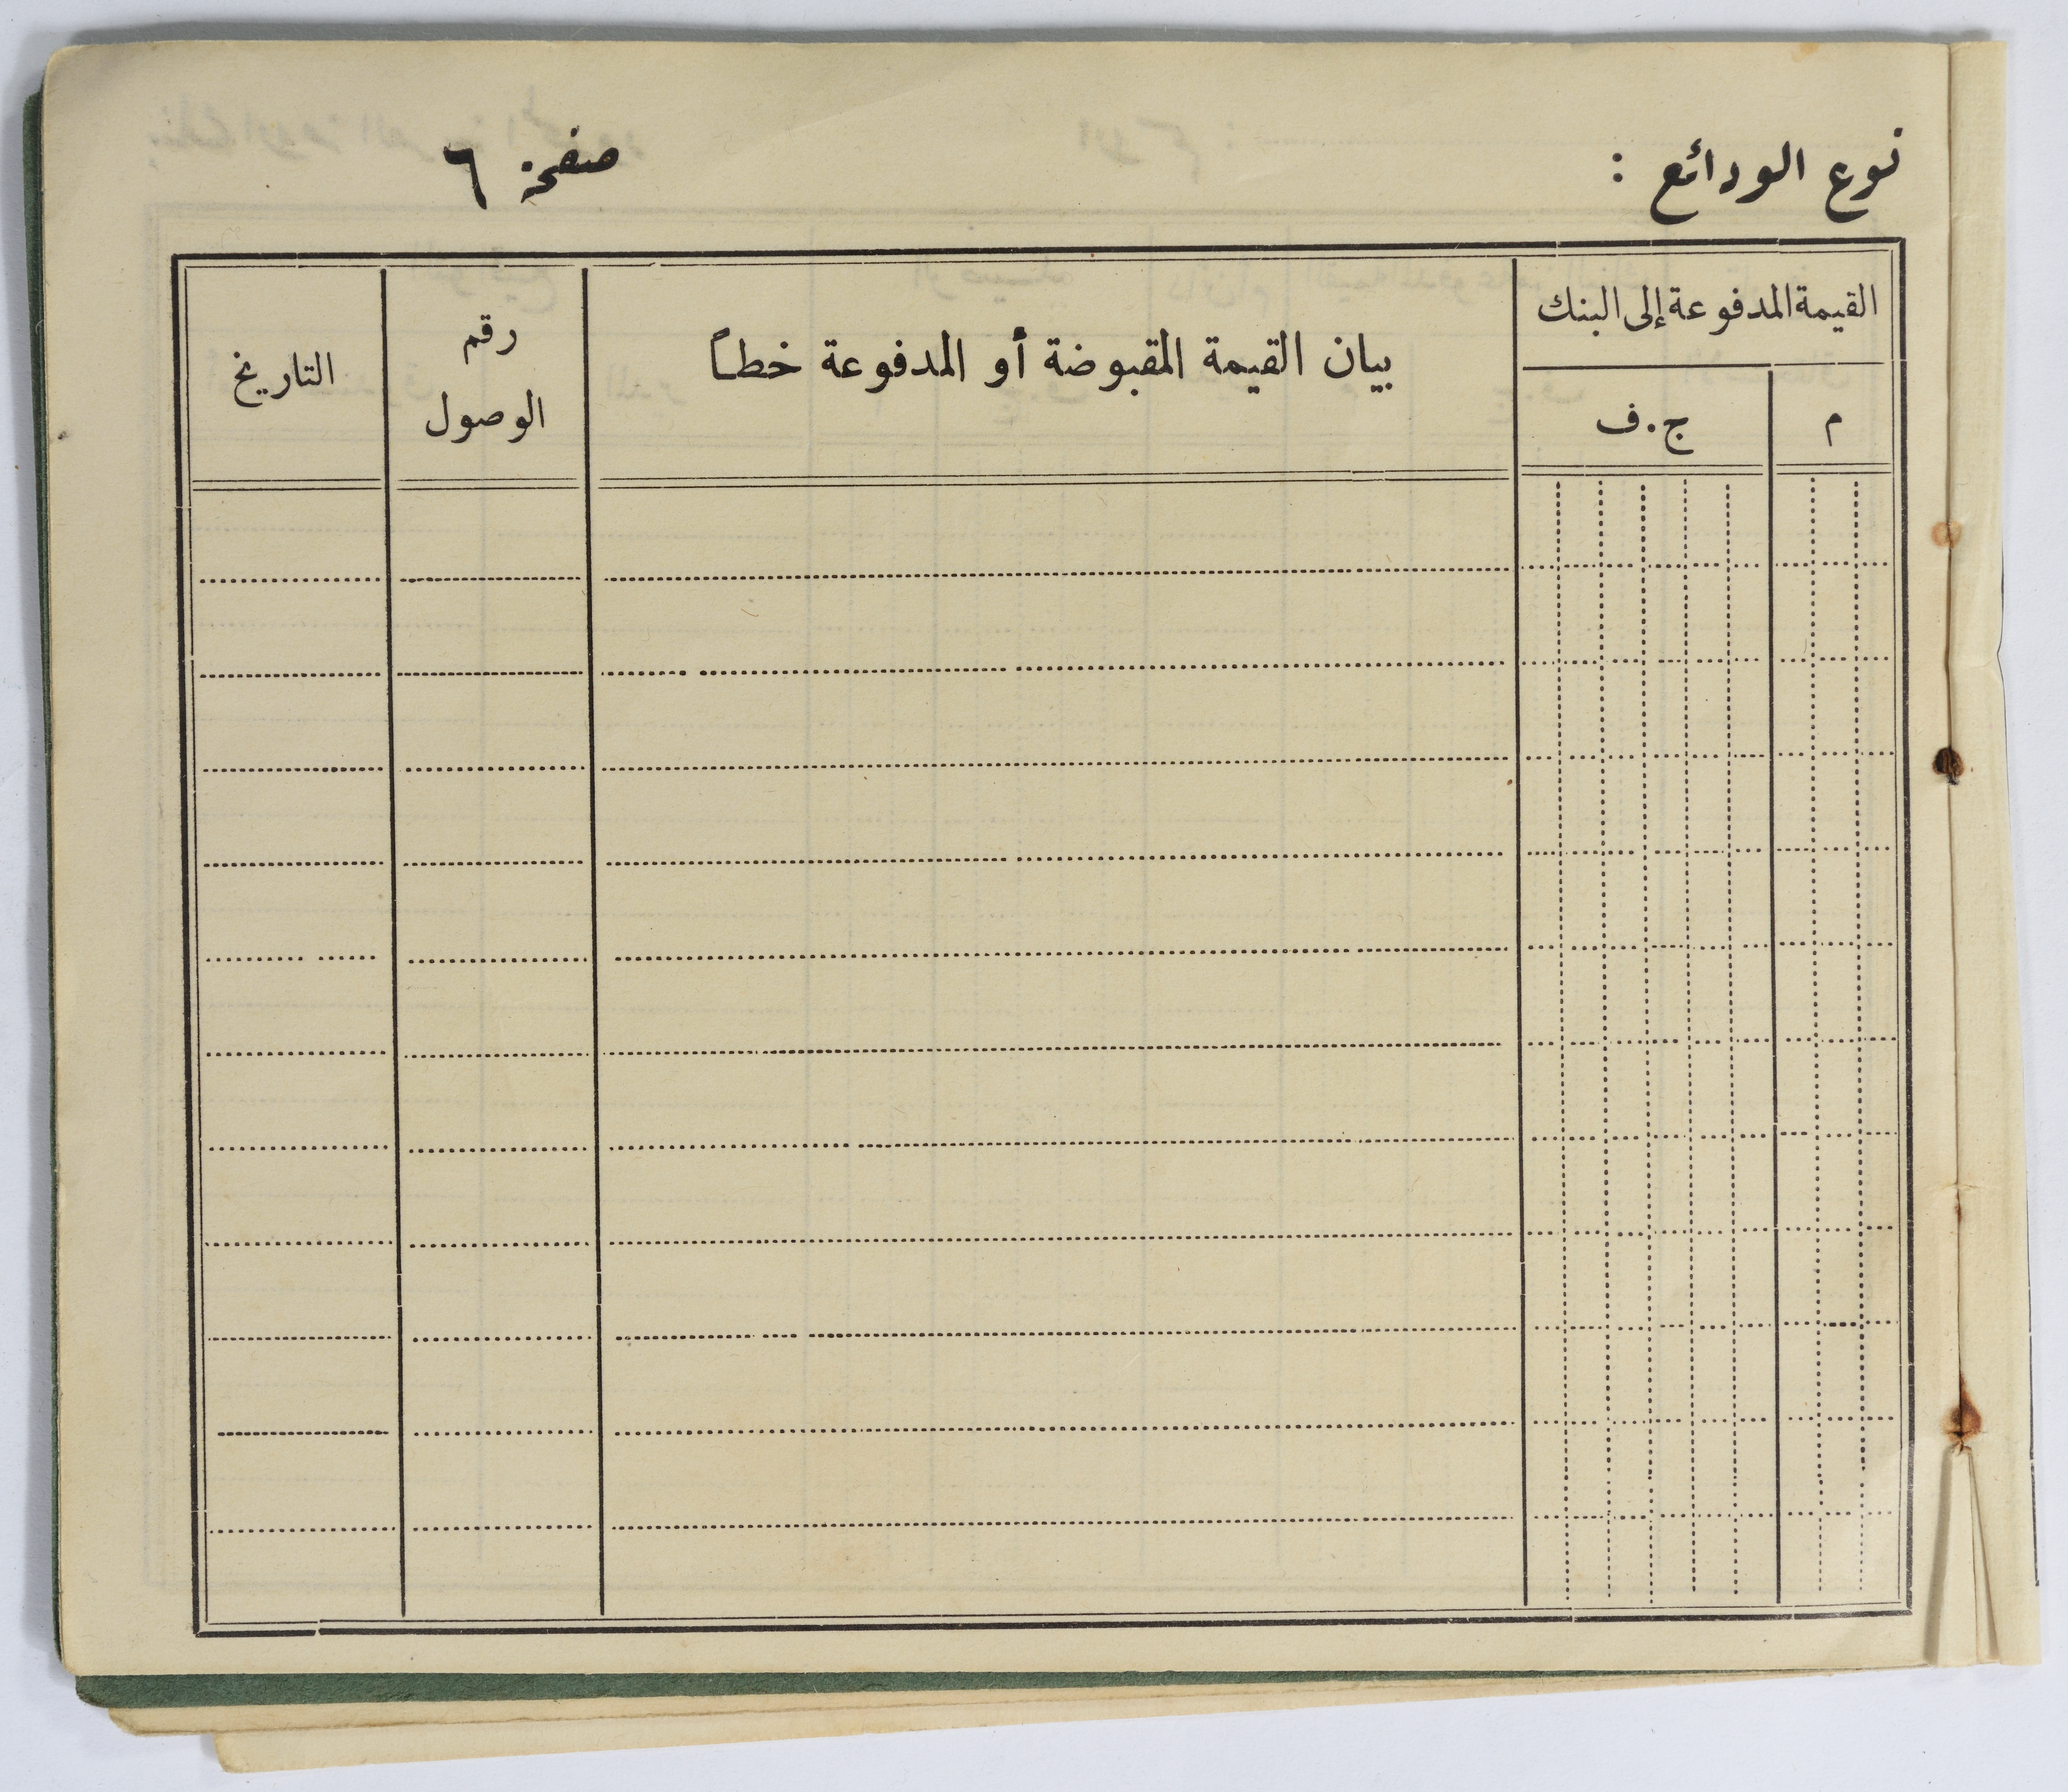 نوع الودائع :
صفحة ٦
القيمة المدفوعة إلى البنك
م
ج.ف
بيان القيمة المقبوضة أو المدفوعة خطاً
رقم
الوصول
التاريخ